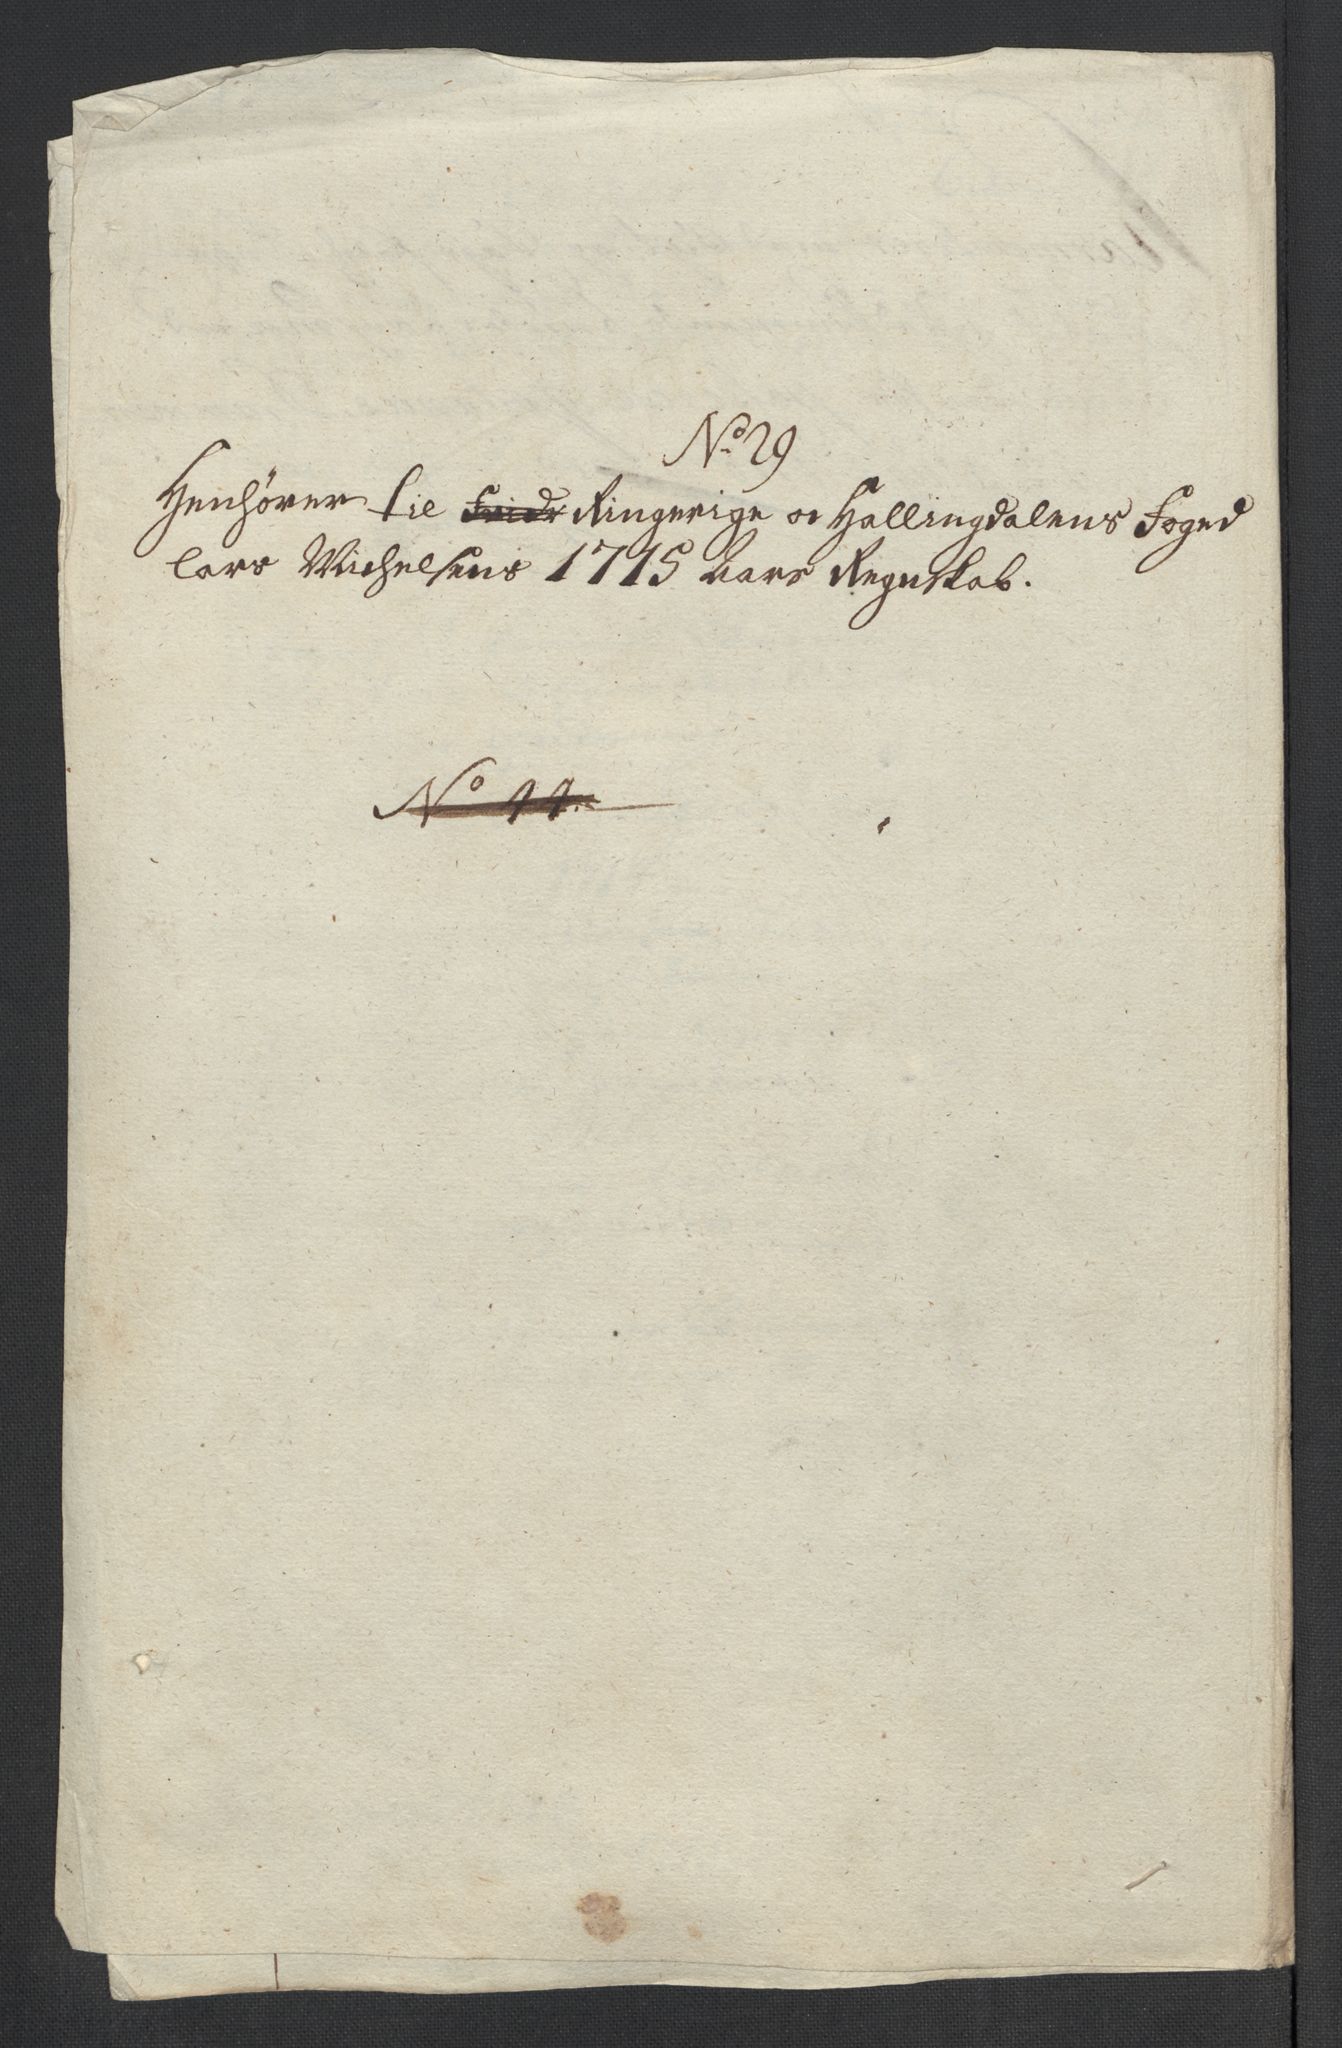 No 29
Henhörer til Ringerige oc Hallingdalens Foged
Lars Michelsens 1715 Aars Regnskab.
No 11.